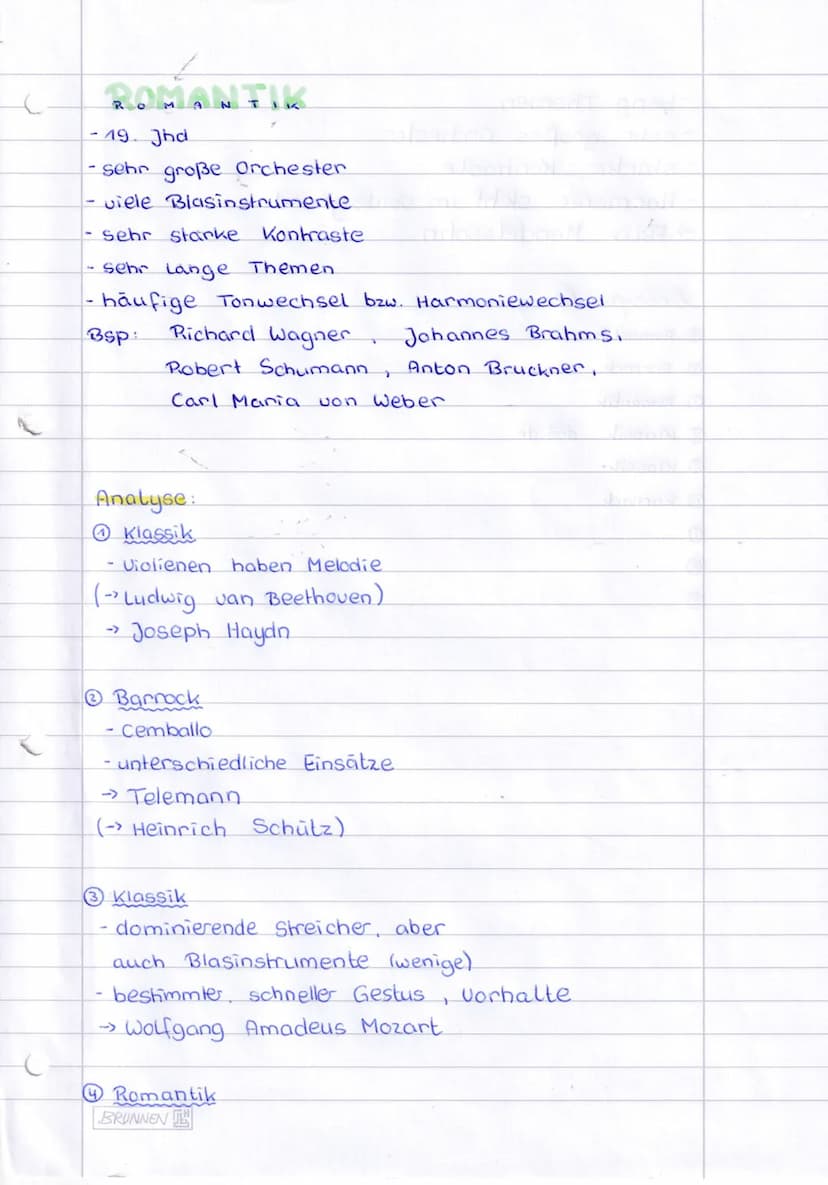 ROMANTIK
- 19. Jhd
- sehr große Orchester
- viele Blasinstrumente
- sehr starke Kontraste
- sehr lange Themen
- häufige Tonwechsel bzw. Harmoniewechsel
Bsp: Richard Wagner, Johannes Brahms,
Robert Schumann, Anton Bruckner,
Carl Maria von Weber
Analyse:
① Klassik
- Violienen haben Melodie
(→ Ludwig van Beethoven)
→ Joseph Haydn
② Barrock
- Cemballo
- unterschiedliche Einsätze
→ Telemann
(→ Heinrich Schütz)
③ Klassik
- dominierende Streicher, aber
auch Blasinstrumente (wenige)
- bestimmter, schneller Gestus, Vorhalte
→ Wolfgang Amadeus Mozart
④ Romantik
BRUNNEN